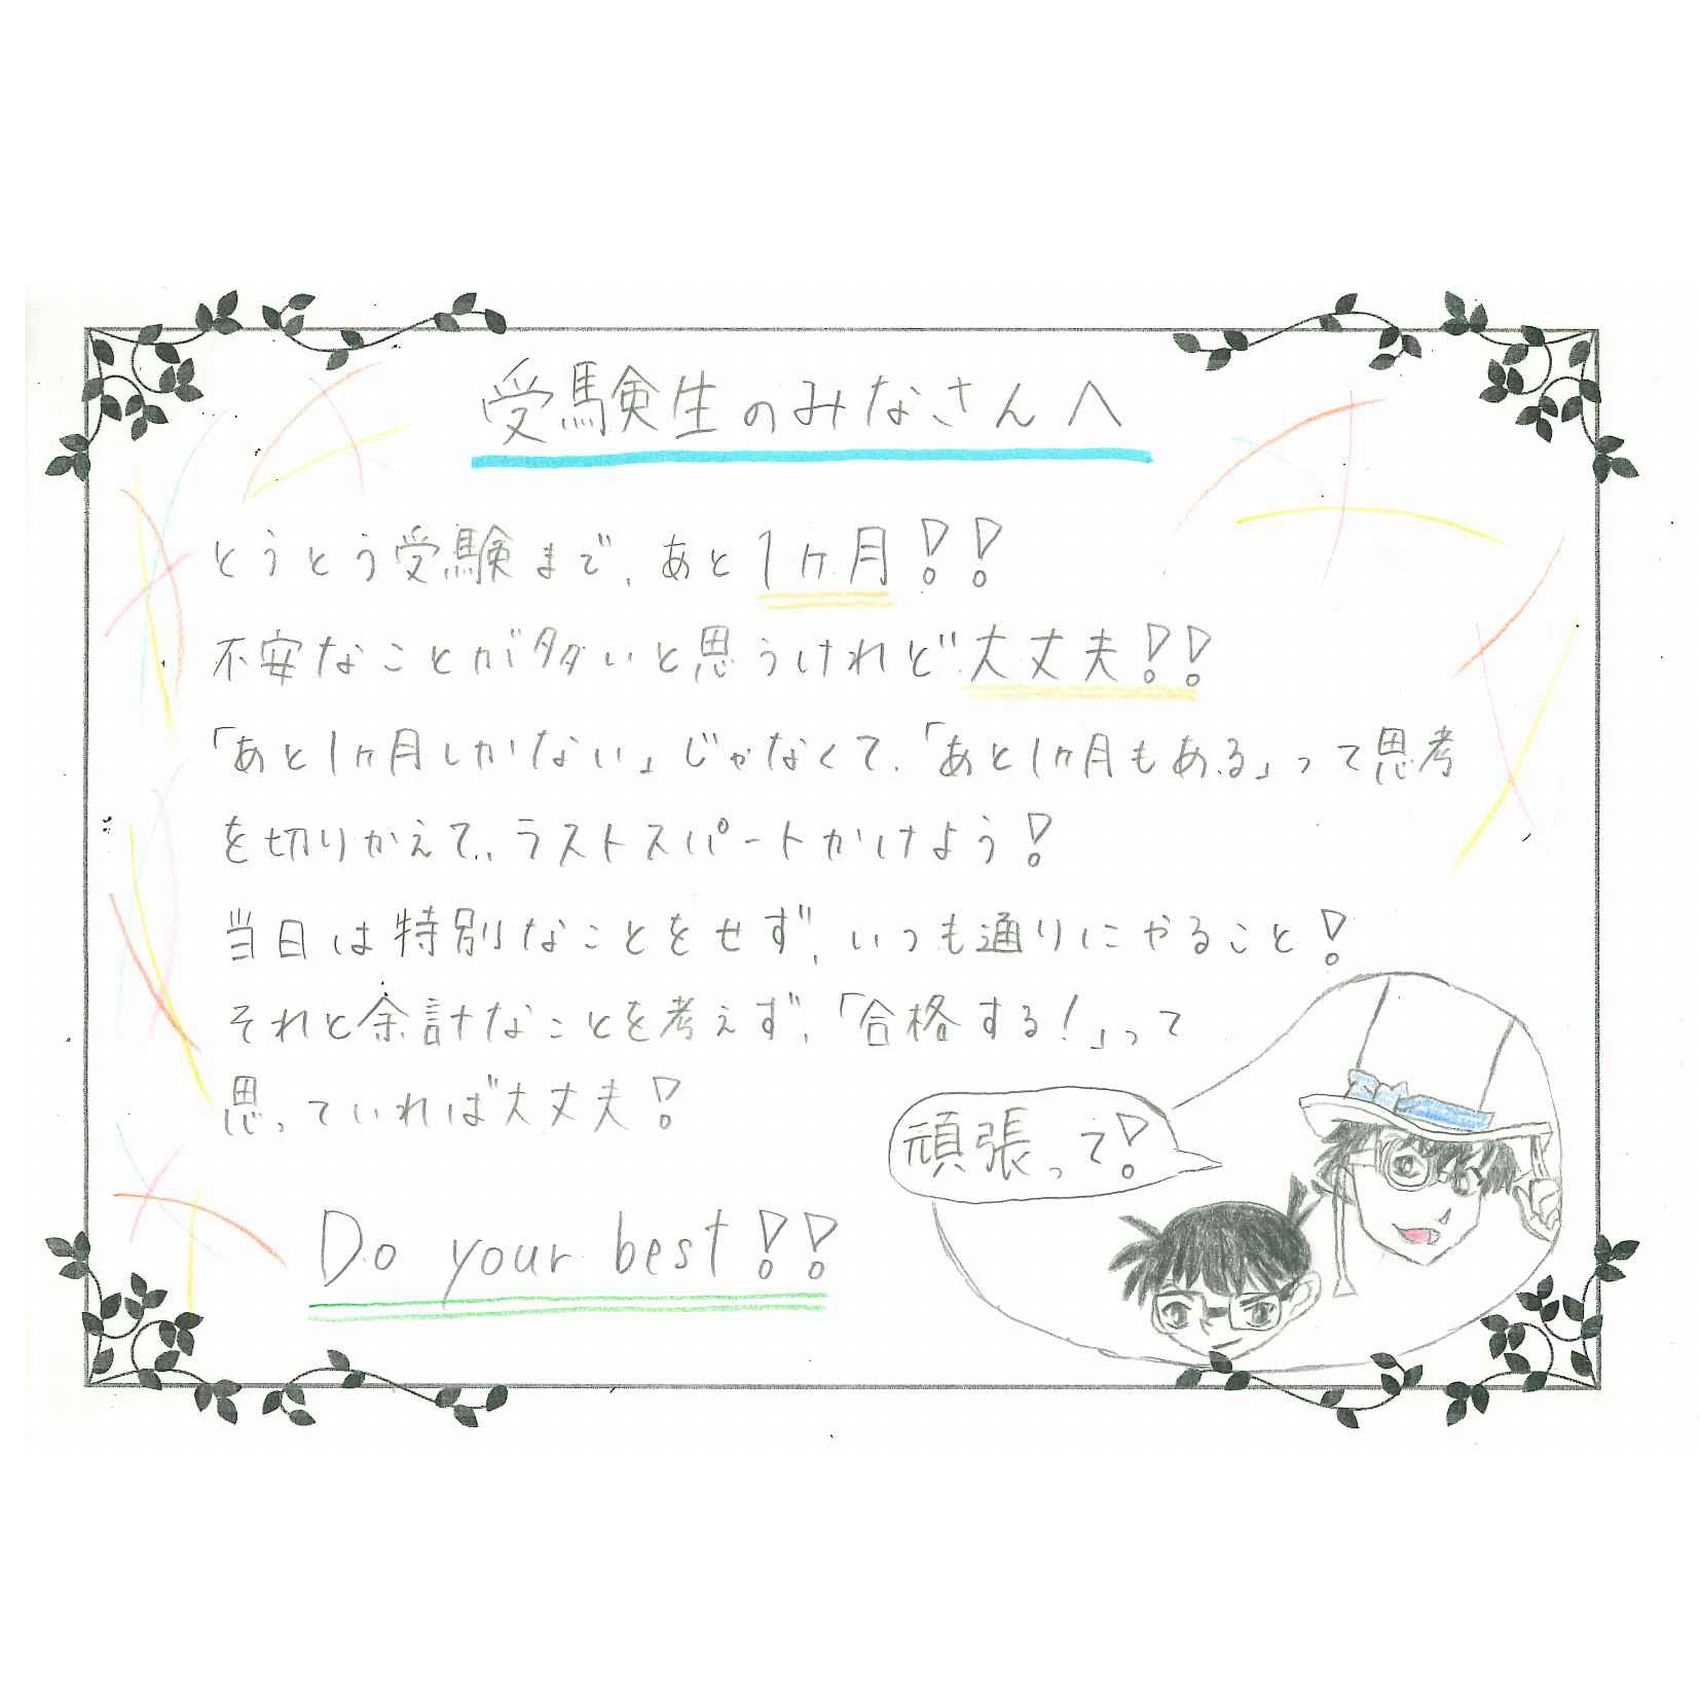 受験生のみなさんへ
とうとう受験まで、あと1ヶ月!!
不安なことが多いと思うけれど大丈夫!!
「あと1ヶ月しかない」じゃなくて、「あと1ヶ月もある」って思考
を切りかえて、ラストスパートかけよう!
当日は特別なことをせず、いつも通りにやること!
それと余計なことを考えず、「合格する!」って
思っていれば大丈夫!
頑張って!
Do your best!!